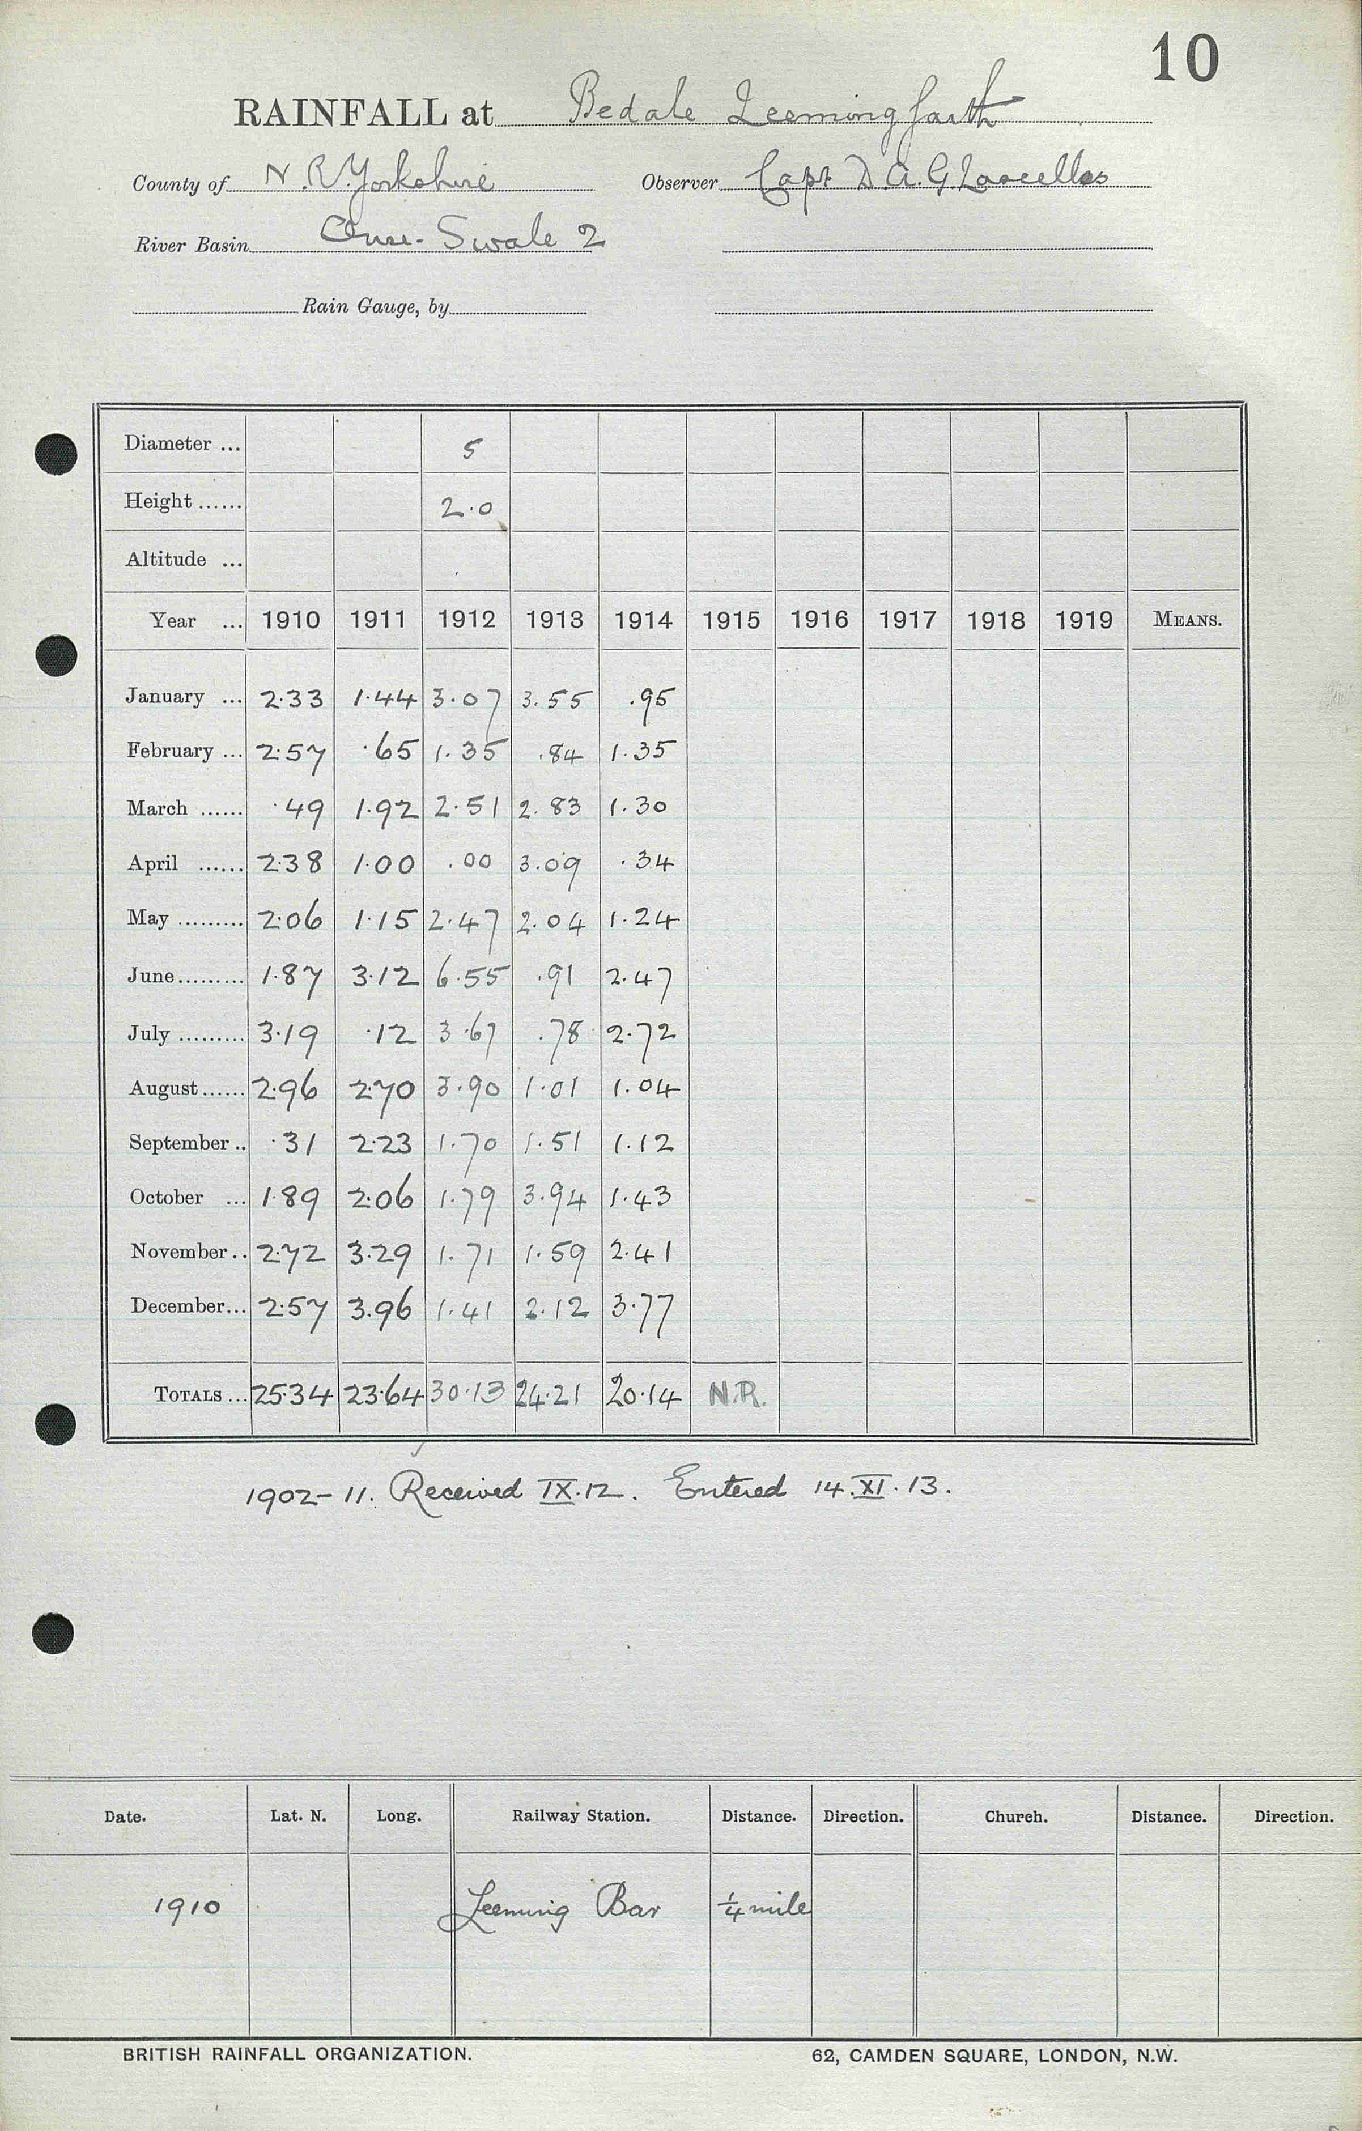 10
RAINFALL at Bedale Leeming Garth
County of N.R. Yorkshire Observer Capt D.A.G Lascelles
River Basin Ouse - Swale 2
Rain Gauge, by
Diameter ... 5
Height ...... 2.0
Altitude ...
Year ... 1910 1911 1912 1913 1914 1915 1916 1917 1918 1919 MEANS.
January ... 2.33 1.44 3.07 3.55 .95
February ... 2.57 .65 1.35 .84 1.35
March ...... .49 1.92 2.51 2.83 1.30
April ...... 2.38 1.00 .00 3.09 .34
May ......... 2.06 1.15 2.47 2.04 1.24
June ......... 1.87 3.12 6.55 .91 2.47
July ......... 3.19 .12 3.67 .78 2.72
August ...... 2.96 2.70 3.90 1.01 1.04
September .. .31 2.23 1.70 1.51 1.12
October ... 1.89 2.06 1.79 3.94 1.43
November .. 2.72 3.29 1.71 1.59 2.41
December ... 2.57 3.96 1.41 2.12 3.77
TOTALS ... 25.34 23.64 30.13 24.21 20.14 N.R.
1902-11. Received IX.12. Entered 14.XI.13.
Date. Lat. N. Long. Railway Station. Distance. Direction. Church. Distance. Direction.
1910 Leeming Bar ¼ mile
BRITISH RAINFALL ORGANIZATION. 62, CAMDEN SQUARE, LONDON, N.W.